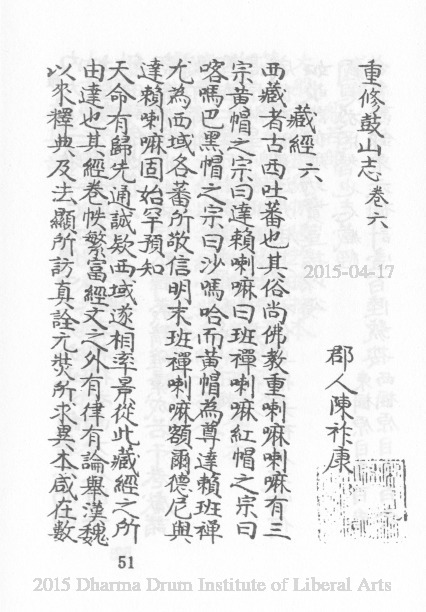 重修鼓山志卷六
郡人陳祚康
藏經六
西藏者古西吐蕃也其俗尚佛教重喇嘛喇嘛有三
宗黃帽之宗曰達賴喇嘛曰班禪喇嘛紅帽之宗曰
喀嗎巴黑帽之宗曰沙嗎哈而黃帽為尊達賴班禪
尤為西域各蕃所敬信明末班禪喇嘛額爾德尼與
達賴喇嘛固始罕預知
天命有歸先通誠欵西域遂相率景從此藏經之所
由達也其經卷帙繁富經文之外有律有論舉漢魏
以來釋典及法顯所訪真詮元奘所求異本咸在數
51
2015-04-17
2015 Dharma Drum Institute of Liberal Arts